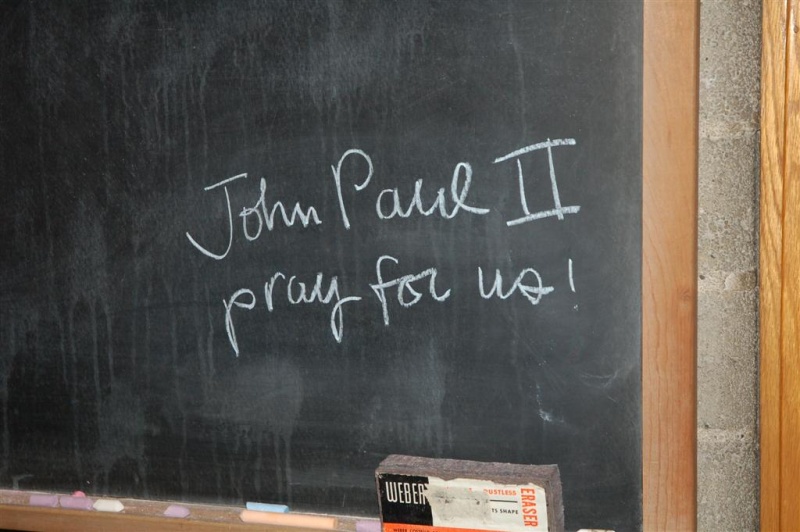 John Paul II
pray for us!
WEBER
DUSTLESS
ERASER
TS SHAPE